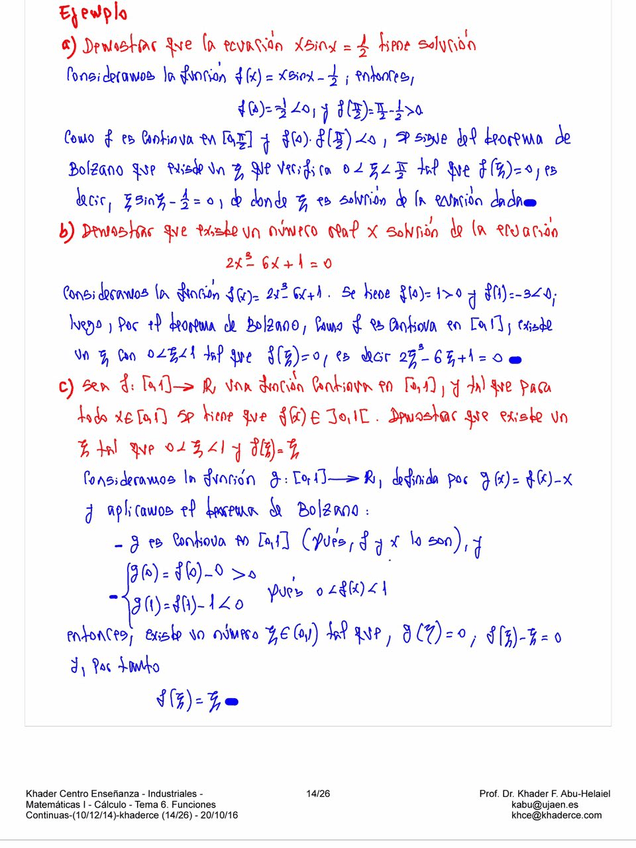 Ejemplo
a) Demostrar que la ecuación x sin x = 1/2 tiene solución
Consideramos la función f(x) = x sin x - 1/2; entonces,
f(0) = -1/2 < 0, y f(π/2) = π/2 - 1/2 > 0
Como f es continua en [0, π/2] y f(0)·f(π/2) < 0, se sigue del teorema de
Bolzano que existe un ξ que verifica 0 < ξ < π/2 tal que f(ξ) = 0, es
decir, ξ sin ξ - 1/2 = 0, de donde ξ es solución de la ecuación dada
b) Demostrar que existe un número real x solución de la ecuación
2x³ - 6x + 1 = 0
Consideramos la función f(x) = 2x³ - 6x + 1. Se tiene f(0) = 1 > 0 y f(1) = -3 < 0;
luego, por el teorema de Bolzano, como f es continua en [0,1], existe
un ξ con 0 < ξ < 1 tal que f(ξ) = 0, es decir 2ξ³ - 6ξ + 1 = 0
c) Sea f: [0,1] → ℝ una función continua en [0,1], y tal que para
todo x ∈ [0,1] se tiene que f(x) ∈ ]0,1[. Demostrar que existe un
ξ tal que 0 < ξ < 1 y f(ξ) = ξ
Consideramos la función g: [0,1] → ℝ, definida por g(x) = f(x) - x
y aplicamos el teorema de Bolzano:
- g es continua en [0,1] (pués, f y x lo son), y
- { g(0) = f(0) - 0 > 0
g(1) = f(1) - 1 < 0 pués 0 < f(x) < 1
entonces, existe un número ξ ∈ (0,1) tal que, g(ξ) = 0; f(ξ) - ξ = 0
y, por tanto
f(ξ) = ξ
Khader Centro Enseñanza - Industriales -
Matemáticas I - Cálculo - Tema 6. Funciones
Continuas-(10/12/14)-khaderce (14/26) - 20/10/16
14/26
Prof. Dr. Khader F. Abu-Helaiel
kabu@ujaen.es
khce@khaderce.com